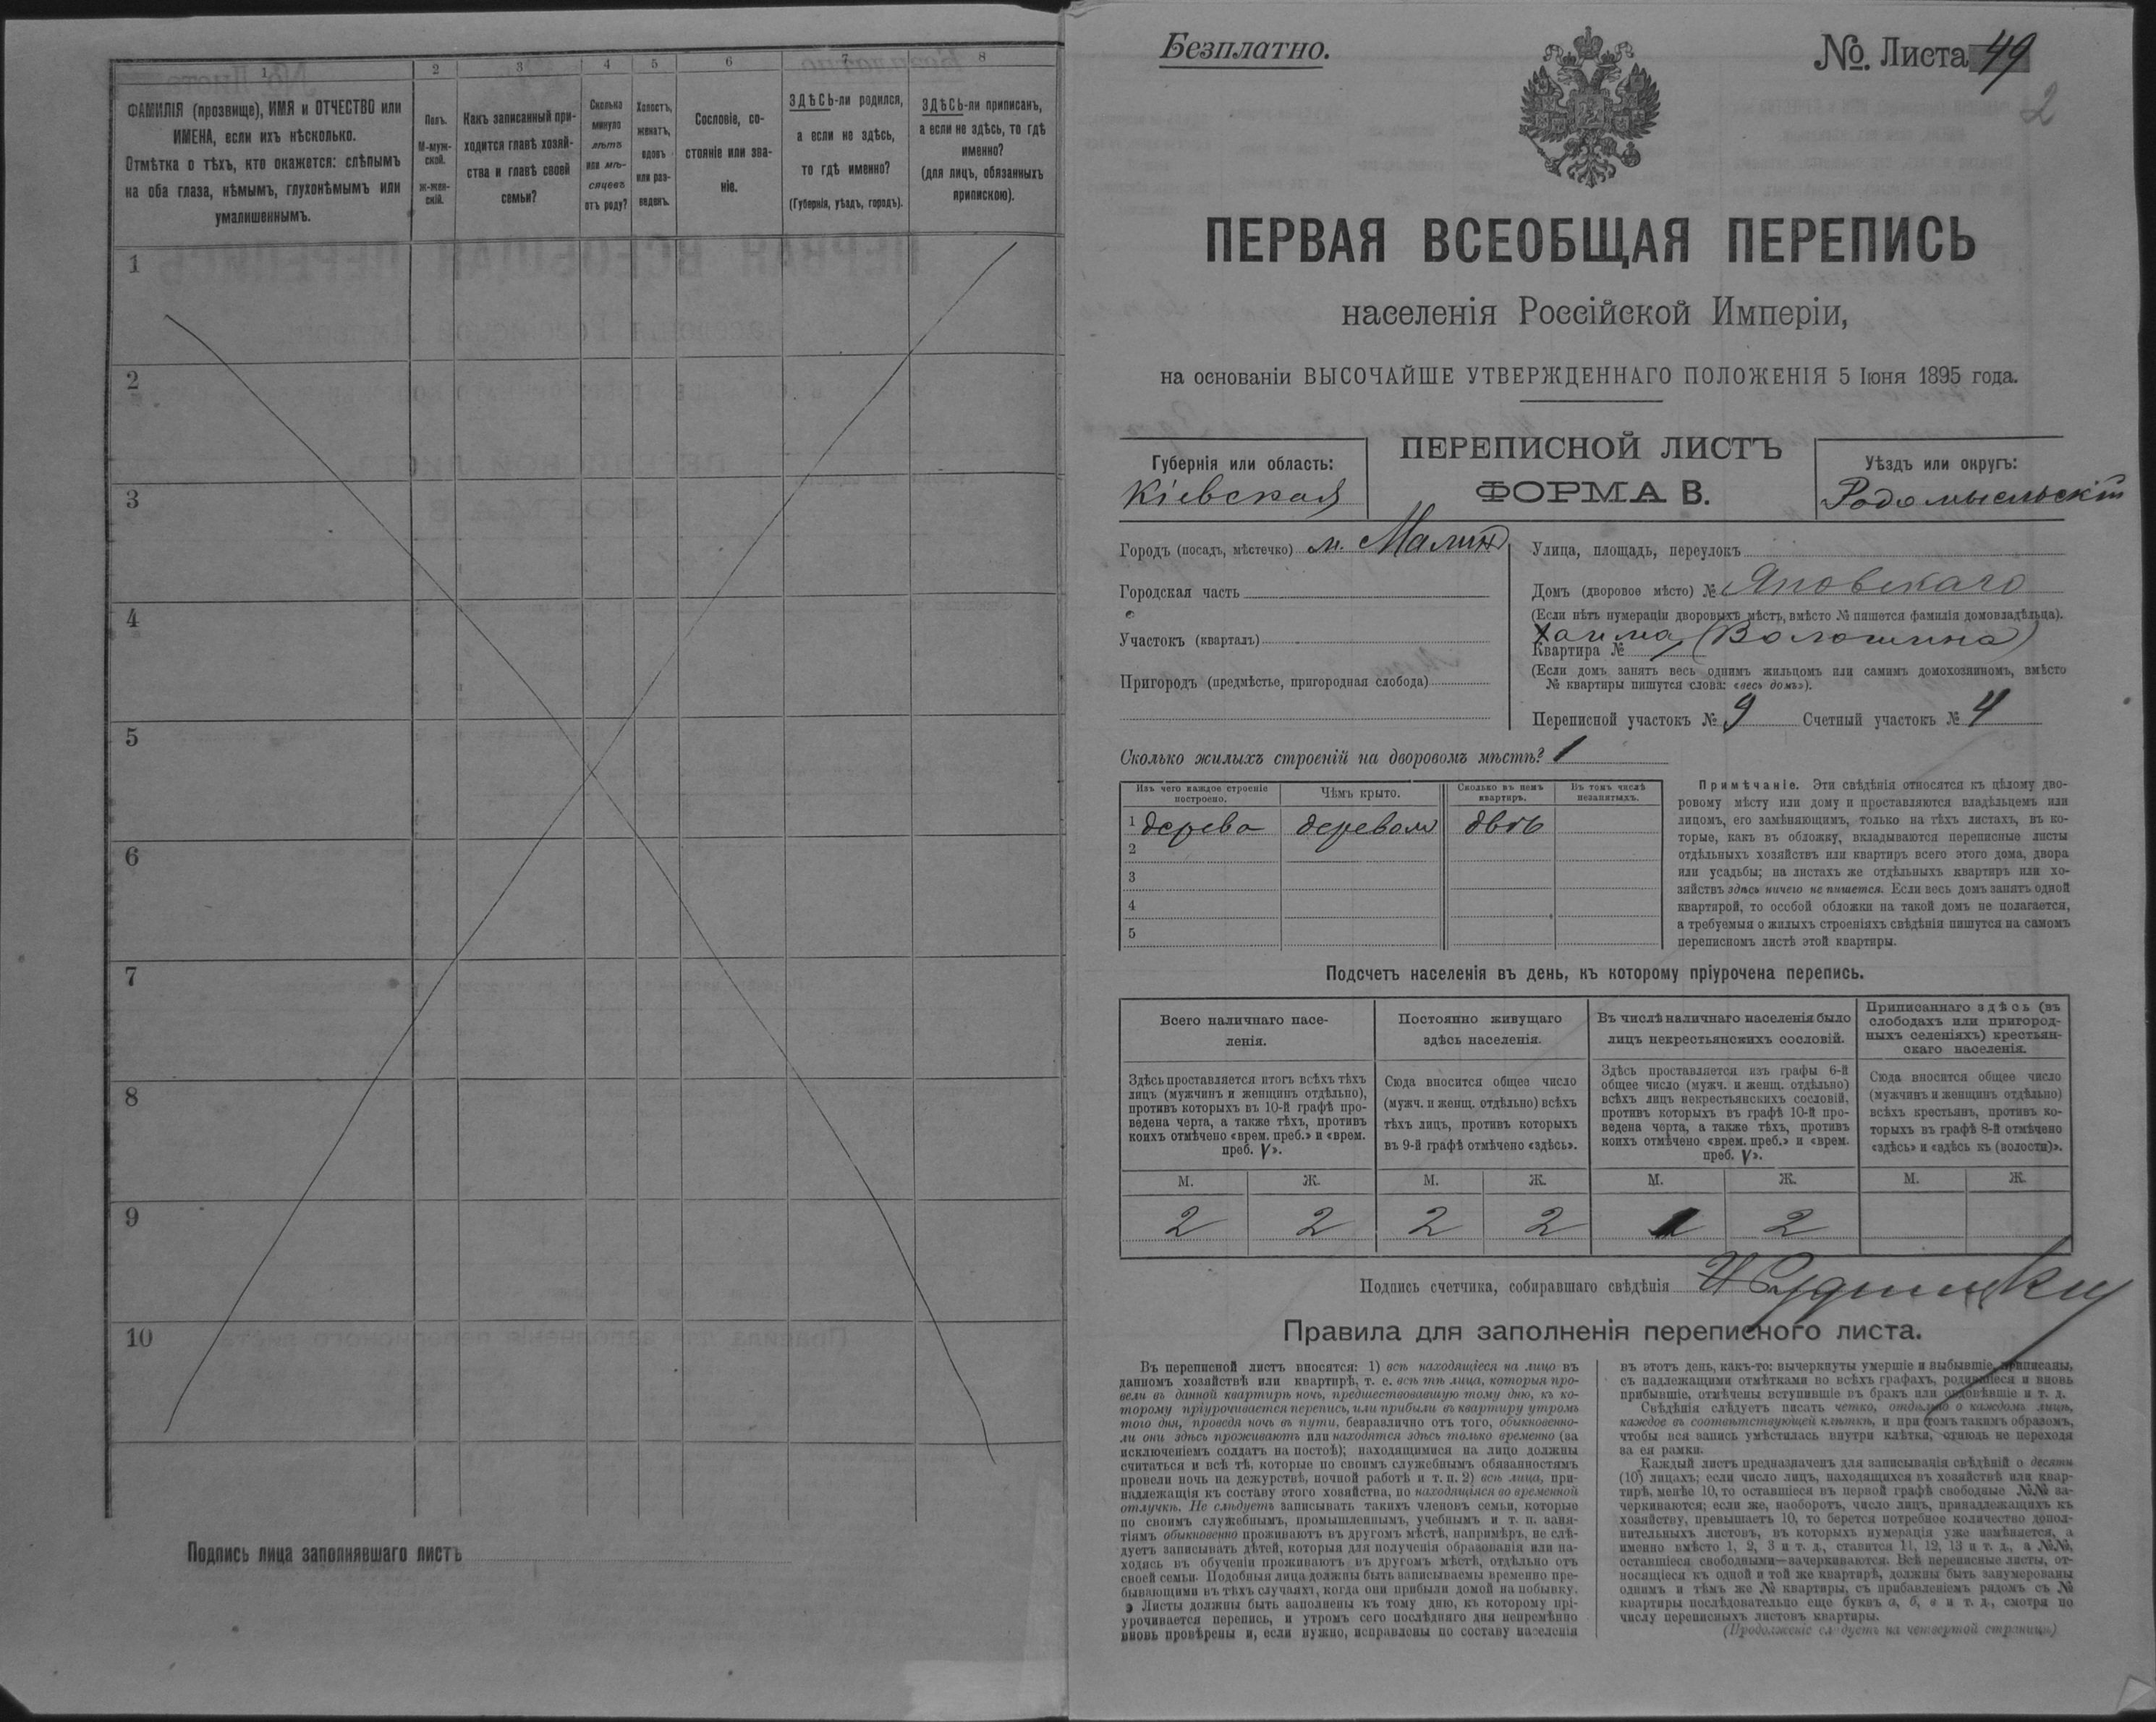 1 2 3 4 5 6 7 8
ФАМИЛІЯ (прозвище), ИМЯ и ОТЧЕСТВО или
ИМЕНА, если ихъ нѣсколько.
Отмѣтка о тѣхъ, кто окажется: слѣпымъ
на оба глаза, нѣмымъ, глухонѣмымъ или
умалишеннымъ.
Полъ.
М-муж-
ской.
Ж-жен-
скій.
Какъ записанный при-
ходится главѣ хозяй-
ства и главѣ своей
семьи?
Сколько
минуло
лѣтъ
или мѣ-
сяцевъ
отъ роду?
Холостъ,
женатъ,
вдовъ
или раз-
веденъ.
Сословіе, со-
стояніе или зва-
ніе.
ЗДѢСЬ-ли родился,
а если не здѣсь,
то гдѣ именно?
(Губернія, уѣздъ, городъ).
ЗДѢСЬ-ли приписанъ,
а если не здѣсь, то гдѣ
именно?
(для лицъ, обязанныхъ
припискою).
1
2
3
4
5
6
7
8
9
10
Подпись лица заполнявшаго листъ
Безплатно.
№. Листа 49
2
ПЕРВАЯ ВСЕОБЩАЯ ПЕРЕПИСЬ
населенія Россійской Имперіи,
на основаніи ВЫСОЧАЙШЕ УТВЕРЖДЕННАГО ПОЛОЖЕНІЯ 5 Іюня 1895 года.
ПЕРЕПИСНОЙ ЛИСТЪ
ФОРМА В.
Губернія или область:
Кіевская
Уѣздъ или округъ:
Радомысльскій
Городъ (посадъ, мѣстечко) м. Малинъ
Городская часть
Участокъ (кварталъ)
Пригородъ (предмѣстье, пригородная слобода)
Улица, площадь, переулокъ
Домъ (дворовое мѣсто) № Яновскаго
(Если нѣтъ нумераціи дворовыхъ мѣстъ, вмѣсто № пишется фамилія домовладѣльца).
Хаима (Волошина)
Квартира №
(Если домъ занятъ весь однимъ жильцомъ или самимъ домохозяиномъ, вмѣсто
№ квартиры пишутся слова: «весь домъ»).
Переписной участокъ № 9 Счетный участокъ № 4
Сколько жилыхъ строеній на дворовомъ мѣстѣ? 1
Изъ чего каждое строеніе
построено.
Чѣмъ крыто.
Сколько въ немъ
квартиръ.
Въ томъ числѣ
незанятыхъ.
1 дерева деревом двѣ
2
3
4
5
Примѣчаніе. Эти свѣдѣнія относятся къ цѣлому дво-
ровому мѣсту или дому и проставляются владѣльцемъ или
лицомъ, его замѣняющимъ, только на тѣхъ листахъ, въ ко-
торые, какъ въ обложку, вкладываются переписные листы
отдѣльныхъ хозяйствъ или квартиръ всего этого дома, двора
или усадьбы; на листахъ же отдѣльныхъ квартиръ или хо-
зяйствъ здѣсь ничего не пишется. Если весь домъ занятъ одной
квартирой, то особой обложки на такой домъ не полагается,
а требуемыя о жилыхъ строеніяхъ свѣдѣнія пишутся на самомъ
переписномъ листѣ этой квартиры.
Подсчетъ населенія въ день, къ которому пріурочена перепись.
Всего наличнаго насе-
ленія.
Здѣсь проставляется итогъ всѣхъ тѣхъ
лицъ (мужчинъ и женщинъ отдѣльно),
противъ которыхъ въ 10-й графѣ про-
ведена черта, а также тѣхъ, противъ
коихъ отмѣчено «врем. преб.» и «врем.
преб. V».
Постоянно живущаго
здѣсь населенія.
Сюда вносится общее число
(мужч. и женщ. отдѣльно) всѣхъ
тѣхъ лицъ, противъ которыхъ
въ 9-й графѣ отмѣчено «здѣсь».
Въ числѣ наличнаго населенія было
лицъ некрестьянскихъ сословій.
Здѣсь проставляется изъ графы 6-й
общее число (мужч. и женщ. отдѣльно)
всѣхъ лицъ некрестьянскихъ сословій,
противъ которыхъ въ графѣ 10-й про-
ведена черта, а также тѣхъ, противъ
коихъ отмѣчено «врем. преб.» и «врем.
преб. V».
Приписаннаго здѣсь (въ
слободахъ или пригород-
ныхъ селеніяхъ) крестьян-
скаго населенія.
Сюда вносится общее число
(мужчинъ и женщинъ отдѣльно)
всѣхъ крестьянъ, противъ ко-
торыхъ въ графѣ 8-й отмѣчено
«здѣсь» и «здѣсь къ (волости)».
М. Ж. М. Ж. М. Ж. М. Ж.
2 2 2 2 1 2
Подпись счетчика, собиравшаго свѣдѣнія
Правила для заполненія переписного листа.
Въ переписной листъ вносятся: 1) всѣ находящіеся на лицо въ
данномъ хозяйствѣ или квартирѣ, т. е. всѣ тѣ лица, которыя про-
вели въ данной квартирѣ ночь, предшествовавшую тому дню, къ ко-
торому пріурочивается перепись, или прибыли въ квартиру утромъ
того дня, проведя ночь въ пути, безразлично отъ того, обыкновенно-
ли они здѣсь проживаютъ или находятся здѣсь только временно (за
исключеніемъ солдатъ на постоѣ); находящимися на лицо должны
считаться и всѣ тѣ, которые по своимъ служебнымъ обязанностямъ
провели ночь на дежурствѣ, ночной работѣ и т. п. 2) всѣ лица, при-
надлежащія къ составу этого хозяйства, но находящіяся во временной
отлучкѣ. Не слѣдуетъ записывать такихъ членовъ семьи, которые
по своимъ служебнымъ, промышленнымъ, учебнымъ и т. п. заня-
тіямъ обыкновенно проживаютъ въ другомъ мѣстѣ, напримѣръ, не слѣ-
дуетъ записывать дѣтей, которыя для полученія образованія или на-
ходясь въ обученіи проживаютъ въ другомъ мѣстѣ, отдѣльно отъ
своей семьи. Подобныя лица должны быть записываемы временно пре-
бывающими въ тѣхъ случаяхъ, когда они прибыли домой на побывку.
Листы должны быть заполнены къ тому дню, къ которому прі-
урочивается перепись, и утромъ сего послѣдняго дня непремѣнно
вновь провѣрены и, если нужно, исправлены по составу населенія
въ этотъ день, какъ-то: вычеркнуты умершіе и выбывшіе, приписаны,
съ надлежащими отмѣтками во всѣхъ графахъ, родившіеся и вновь
прибывшіе, отмѣчены вступившіе въ бракъ или овдовѣвшіе и т. д.
Свѣдѣнія слѣдуетъ писать четко, отдѣльно о каждомъ лицѣ,
каждое въ соотвѣтствующей клѣткѣ, и при томъ такимъ образомъ,
чтобы вся запись умѣстилась внутри клѣтки, отнюдь не переходя
за ея рамки.
Каждый листъ предназначенъ для записыванія свѣдѣній о десяти
(10) лицахъ; если число лицъ, находящихся въ хозяйствѣ или квар-
тирѣ, менѣе 10, то оставшіеся въ первой графѣ свободные №№ за-
черкиваются; если же, наоборотъ, число лицъ, принадлежащихъ къ
хозяйству, превышаетъ 10, то берется потребное количество допол-
нительныхъ листовъ, въ которыхъ нумерація уже измѣняется, а
именно вмѣсто 1, 2, 3 и т. д., ставится 11, 12, 13 и т. д., а №№,
оставшіеся свободными—зачеркиваются. Всѣ переписные листы, от-
носящіеся къ одной и той же квартирѣ, должны быть занумерованы
однимъ и тѣмъ же № квартиры, съ прибавленіемъ рядомъ съ №
квартиры послѣдовательно еще буквъ а, б, в и т. д., смотря по
числу переписныхъ листовъ квартиры.
(Продолженіе слѣдуетъ на четвертой страницѣ)